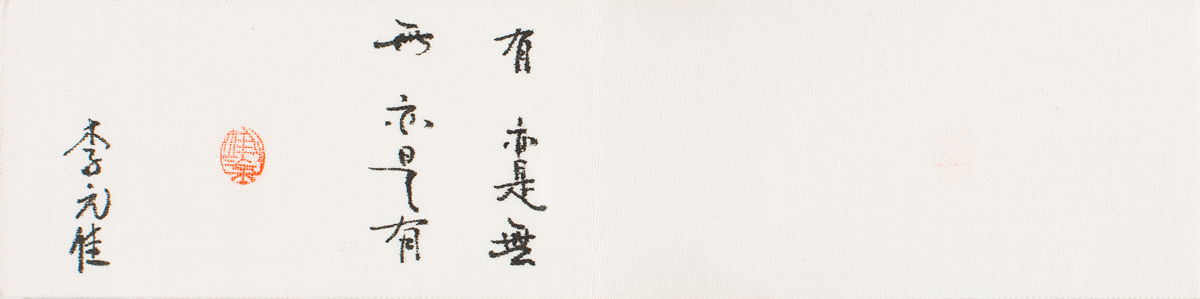 有亦是無
無亦是有
李元佳